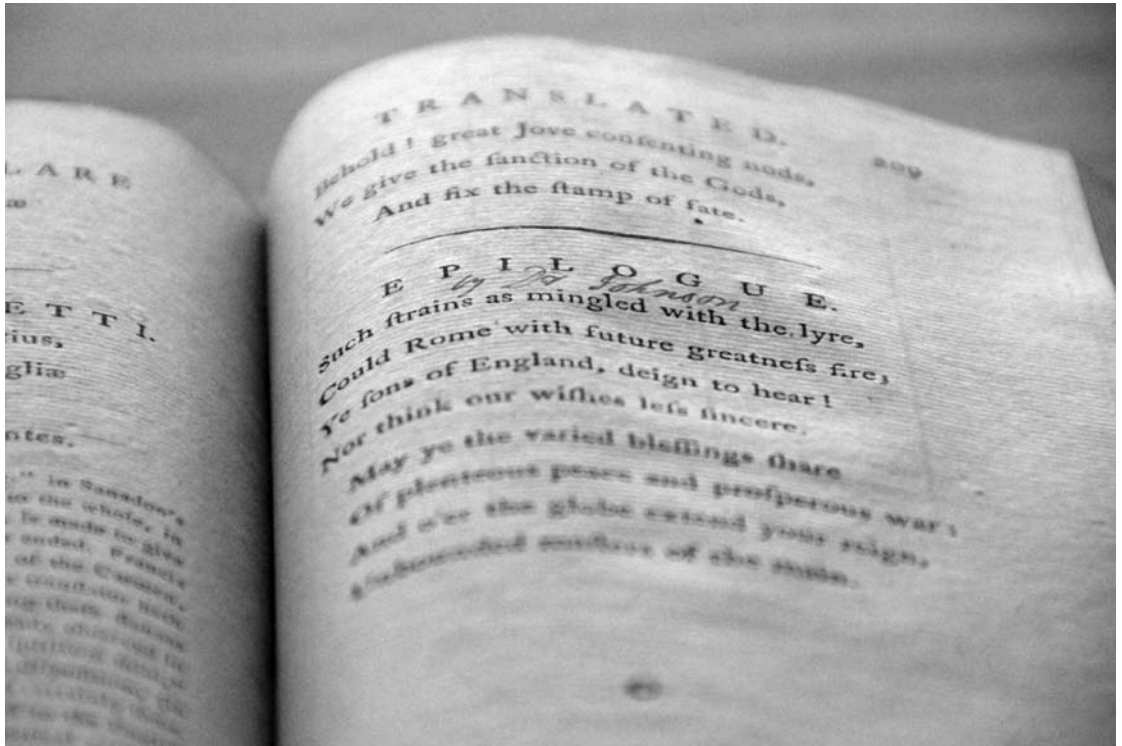 LARE
æ
ETTI.
rius,
gliæ
ntes.
," in Sanadon's
to the whole, in
is made to give
ended. Francis
of the Carmen,
TRANSLATED. 209
Behold! great Jove conſenting nods,
We give the ſanction of the Gods,
And fix the ſtamp of fate.
EPILOGUE.
by Dr Johnson
Such ſtrains as mingled with the lyre,
Could Rome with future greatneſs fire,
Ye ſons of England, deign to hear!
Nor think our wiſhes leſs ſincere.
May ye the varied bleſſings ſhare
Of plenteous peace and proſperous war;
And o'er the globe extend your reign,
Unbounded of the main.